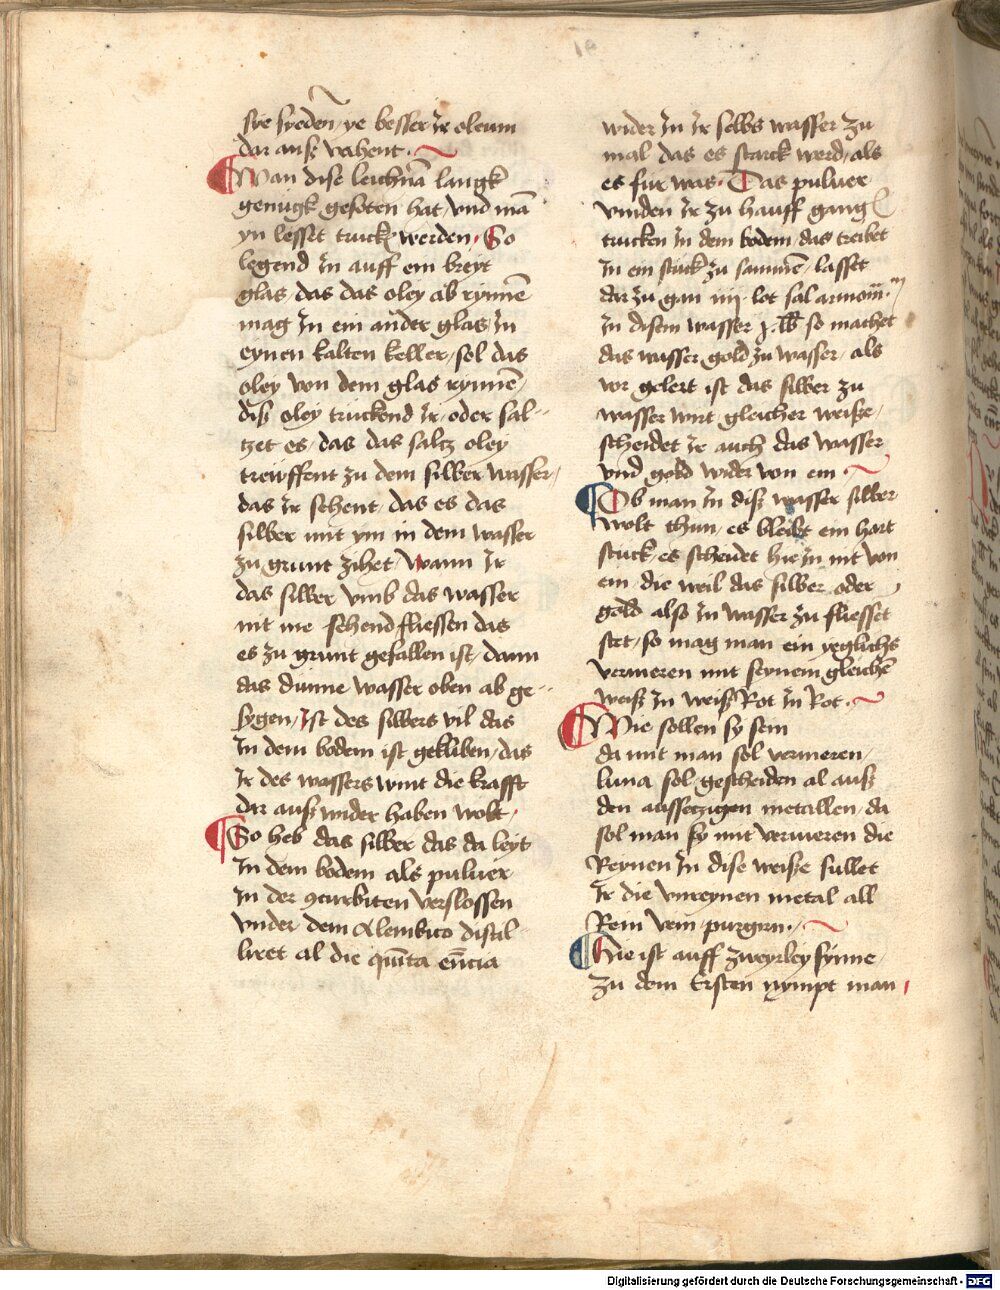 sye syeden, ye besser ir oleum
dar auß vahent.
Wan dise leichnā langk
genugk gesoten hat, vnd mā
yn lesset trucken werden, So
legend in auff ein breyt
glas, das das oley ab rynnē
mag in ein ander glas, in
eynen kalten keller, sol das
oley von dem glas rynnē,
diß oley truckend ir, oder sal-
tzet es, das das saltz oley
treuffent zu dem silber wasser,
das ir sehent, das es das
silber mit ym in dem wasser
zu grunt zihet, Wann ir
das silber vmb das wasser
nit me sehend fliessen das
es zu grunt gefallen ist, dann
das dunne wasser oben ab ge-
sygen, ist des silbers vil das
in dem bodem ist gekliben, das
ir des wassers mit die krafft
dar auß wider haben wolt,
So heb das silber das da leyt
in dem bodem als puluer
in der curbiten verslossen
vnder dem Alembico distil
liret al die quīta eñcia
wider in ir selbs wasser zu
mal das es starck werd, als
es fur was. Das puluer
vinden ir zu hauff gang
trucken in dem bodem, das treibet
in ein stuck zu samnē, lasset
dar zu gan iiij lot sal armon̄.
in disem wasser j. so machet
das wasser gold zu wasser, als
vor gelert ist das silber zu
wasser mit gleicher weiße,
scheidet ir auch das wasser
vnd gold wider von ein
Ob man in diß wasser silber
wolt thun, es bleibt ein hart
stuck, es scheidet hie in nit von
ein die weil das silber oder
gold also in wasser zu fliesset
stet, so mag man ein yegliche
vermeren mit seynem gleichē
weiß in weiß Rot in Rot.
Wie sollen sy sein
da mit man sol vermeren,
luna sol gescheiden al auß
den aussetzigen metallen, da
sol man sy mit vermeren die
Reynen in dise weiße sullet
ir die vnreynen metal all
Rein vein purgirn.
Hie ist auff zweyrley synne,
zu dem Ersten nympt man
Digitalisierung gefördert durch die Deutsche Forschungsgemeinschaft - DFG